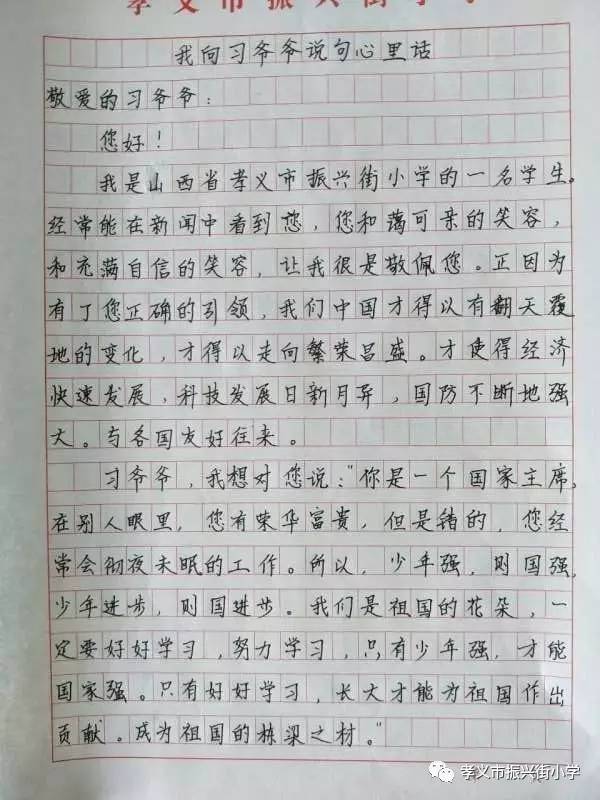 孝义市振兴街小学
我向习爷爷说句心里话
敬爱的习爷爷：
您好！
我是山西省孝义市振兴街小学的一名学生。
经常能在新闻中看到您，您和蔼可亲的笑容，
和充满自信的笑容，让我很是敬佩您。正因为
有了您正确的引领，我们中国才得以有翻天覆
地的变化，才得以走向繁荣昌盛。才使得经济
快速发展，科技发展日新月异，国防不断地强
大。与各国友好往来。
习爷爷，我想对您说："你是一个国家主席，
在别人眼里，您有荣华富贵，但是错的，您经
常会彻夜未眠的工作。所以，少年强，则国强，
少年进步，则国进步。我们是祖国的花朵，一
定要好好学习，努力学习，只有少年强，才能
国家强。只有好好学习，长大才能为祖国作出
贡献。成为祖国的栋梁之材。"
孝义市振兴街小学